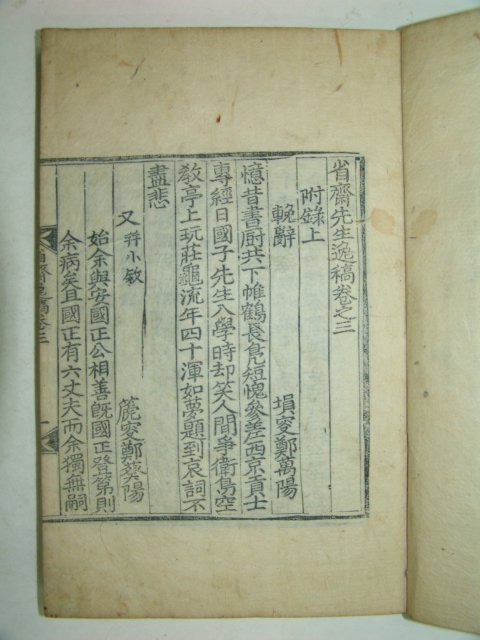 省齋先生逸稿卷之三
附錄上
輓辭 塤叟鄭萬陽
憶昔書廚共下帷鶴長鳧短愧參差西京貢士
專經日國子先生入學時却笑人間爭衛鳥空
敎亭上玩莊龜流年四十渾如夢題到哀詞不
盡悲
又 幷小敍 篪叟鄭葵陽
始余與安國正公相善旣國正登第則
余病矣且國正有六丈夫而余獨無嗣